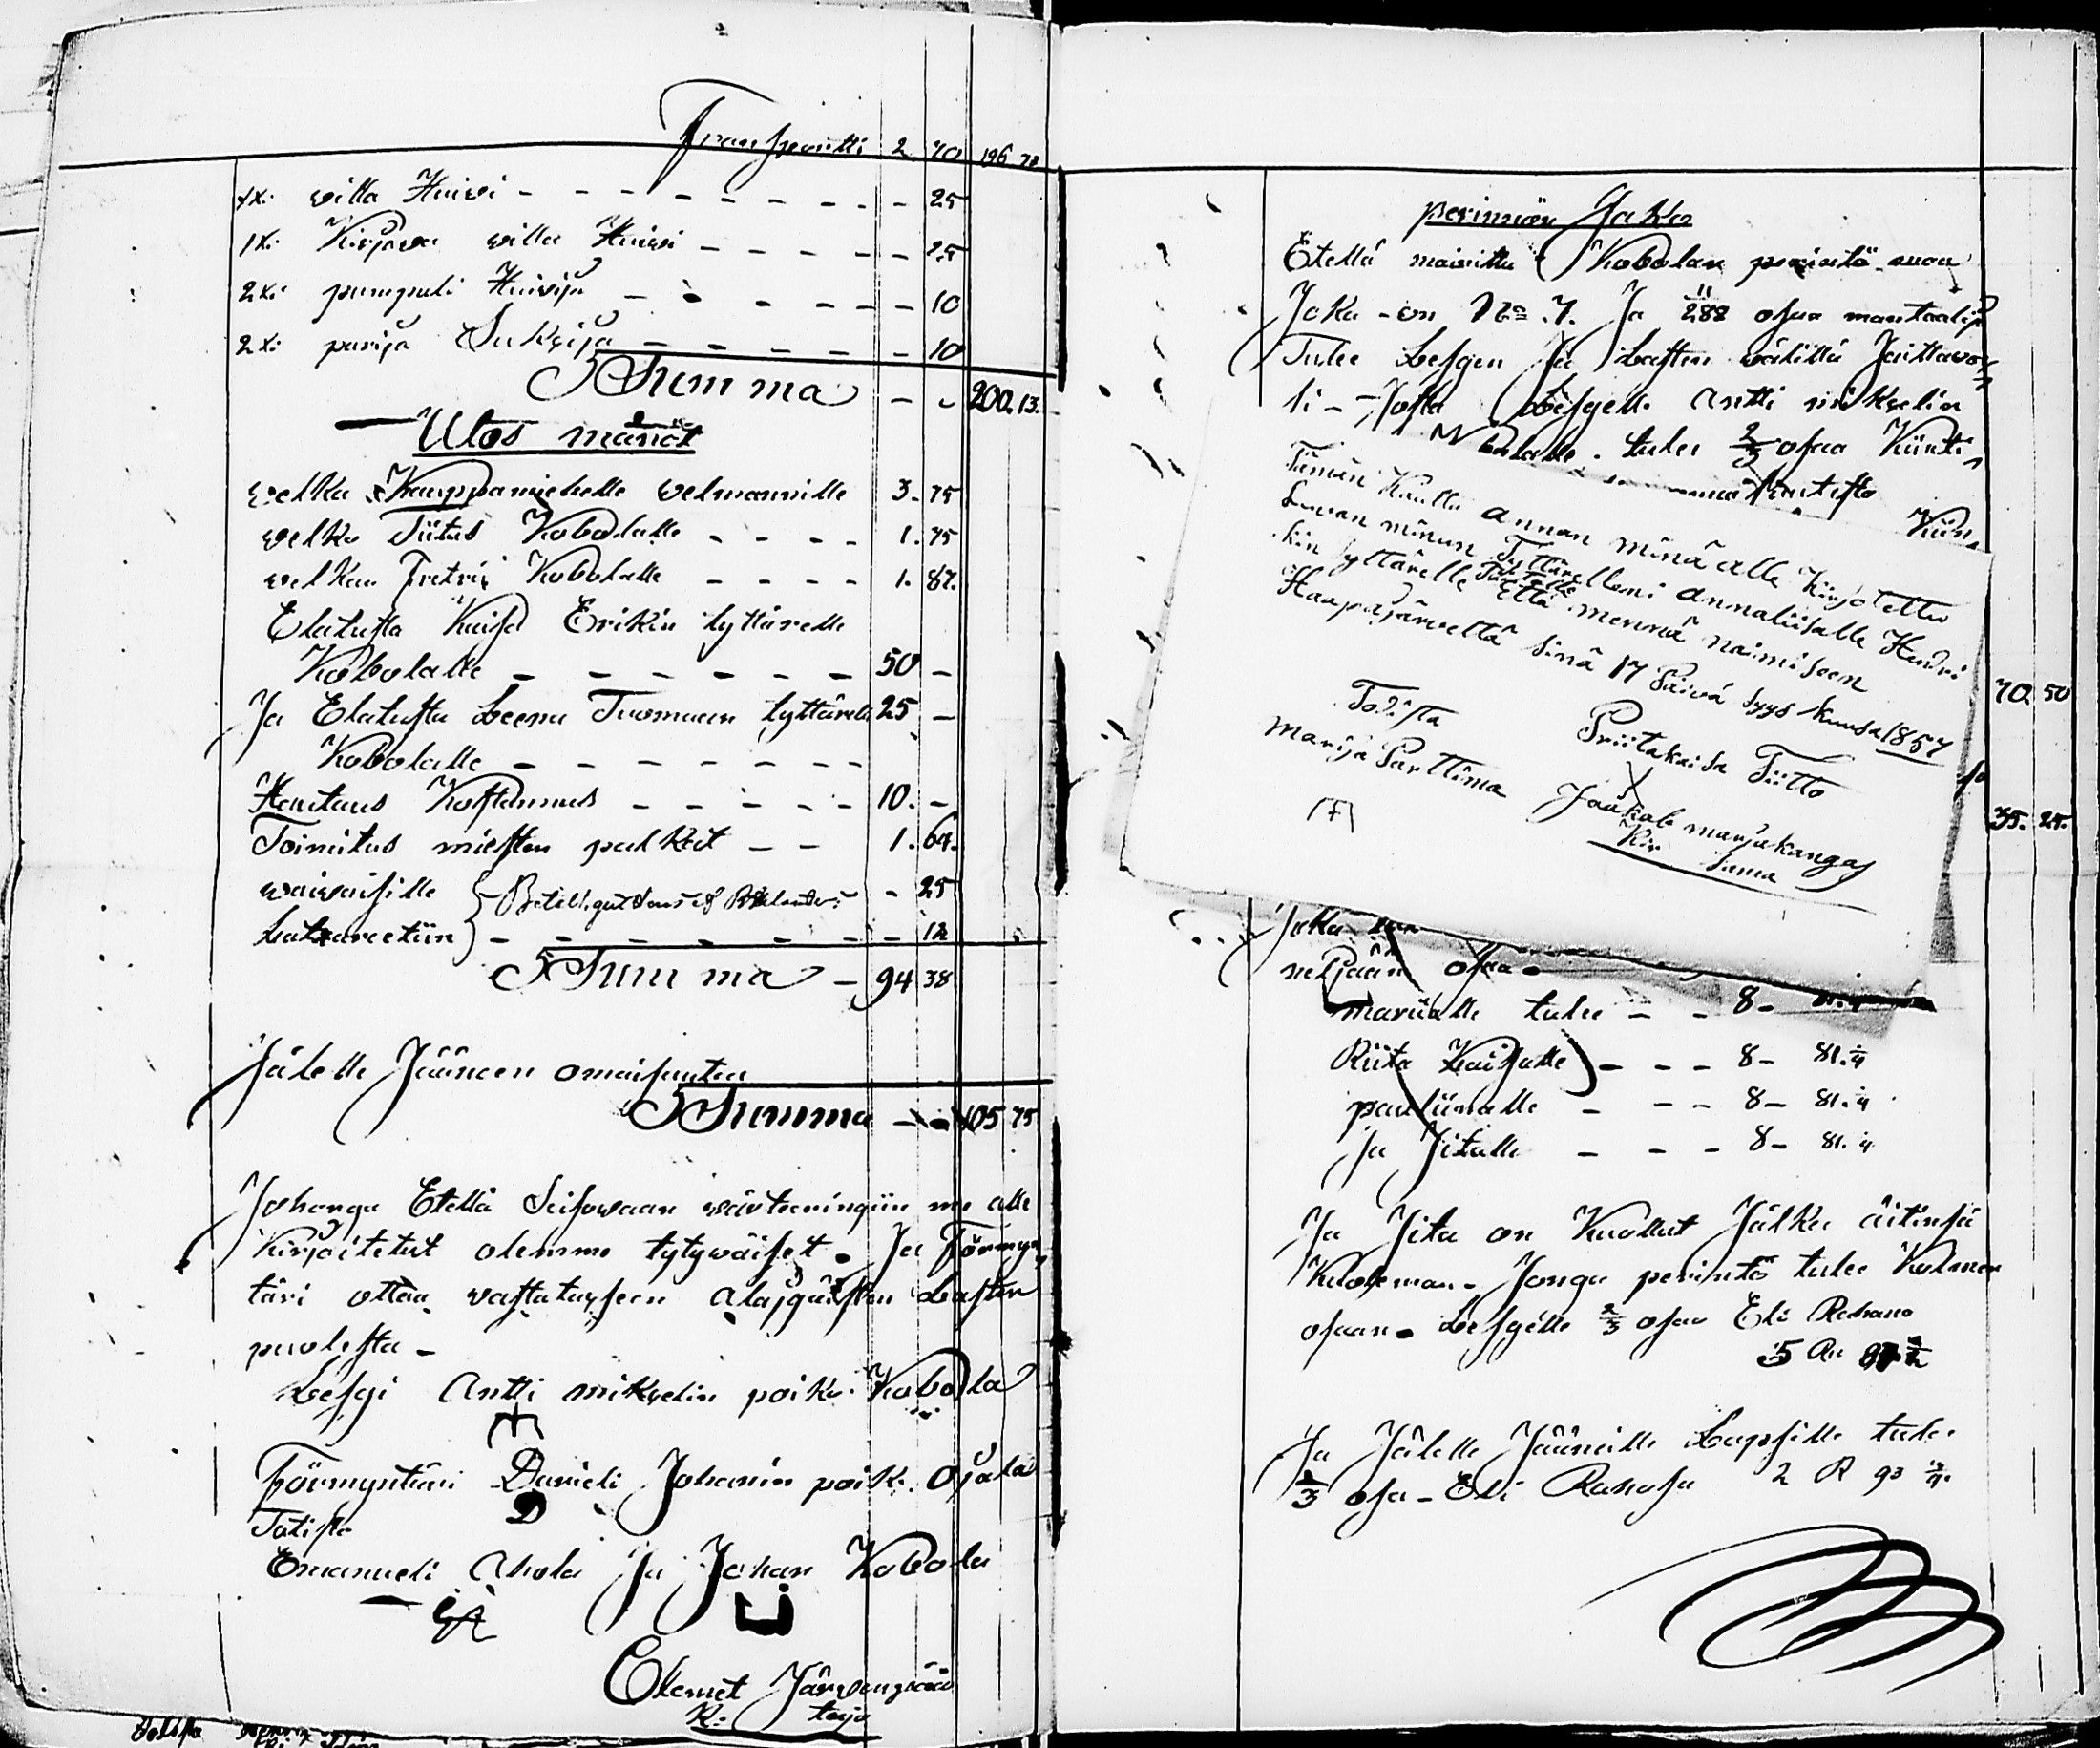 Transportti 2 70 196 78
1 k: willa Huivi - - - - - - - - - 25
1 k: Kirjava willa Huivi - - - - - 25
2 k: pumpuli Huivija - - - - - - 10
2 k: parija Sukkija - - - - - - 10
Summa - - 200. 13.
Ulos mänöt
welka Kauppamiehelle welmannille 3. 75
welka Tiitus Kobolalle - - - - 1. 75
welkaa Fretrik Kobolalle - - - - 1. 87.
Elatusta Kaisa Erikin tyttärelle
Kobolalle - - - - - - 50 -
Ja Elatusta Leena Tuomaan tyttärelle 25 -
Kobolalle - - - - - - -
Hautaus Kostannus - - - - - 10. -
Toimitus miesten palkkat - - 1. 64.
waivaisille - 25
Latsareetiin - - - - - - - 12
Summa - 94 38
Jälelle Jääneen omaisuuten
Summa - - 105 75
Johonga Etellä Seisowaan wärteeringiin me alle
Kirjoitetut olemme tytywäiset. Ja Förmyn
täri ottaa wastatuxseen alajgäisten Lasten
puolesta -
Lesgi Antti mikkelin poika Kobola
Förmyntäri Danieli Johanin poik. Ojala
D
Totista
Emanueli Ahola Ja Johan Kobola
Clemet Järwenpää
K: taja
Totista
perinnön Jako
Etellä mainittu Kobolan perintö-maa
Joka - on No 7. Ja 11/288 osaa mantaalija
Tulee Lesgen Ja Lasten wälillä Jaittawax
si - Josta Lesgelle Antti mikkelin
tulee 2/3 osaa Kiinti
Kiin
70. 50
35. 25.
Tämän Kautta annan minä alle Kirjotettu
Luwan minun Tyttärelleni annaliisalle Hendri
kin tyttärelle Että mennä naimiseen
Haapajärweltä Sinä 17 Päivä syys kuusa 1857
Todista
Priitakaisa Tiitto
Marija Parttima
Jaakob marjakangas
Kir Sama
Joka
neljään osaa -
mariialle tulee - - 8 -
Riita Kaisalle - - - 8 - 81. 1/4
pauliinalle - - - 8 - 81. 1/4
Ja Jitalle - - - 8 - 81. 1/4
Ja Jita on Kuollut Jälkee äitinsä
Kuoleman - Jonga perintö tulee Kolmen
osaan - Lesgelle 2/3 osaa Eli Rahano
5 Ru 87 1/2
Ja Jälelle Jääneille Lapsille tulee
1/3 osa - Eli Rahasa 2 R 93 3/4